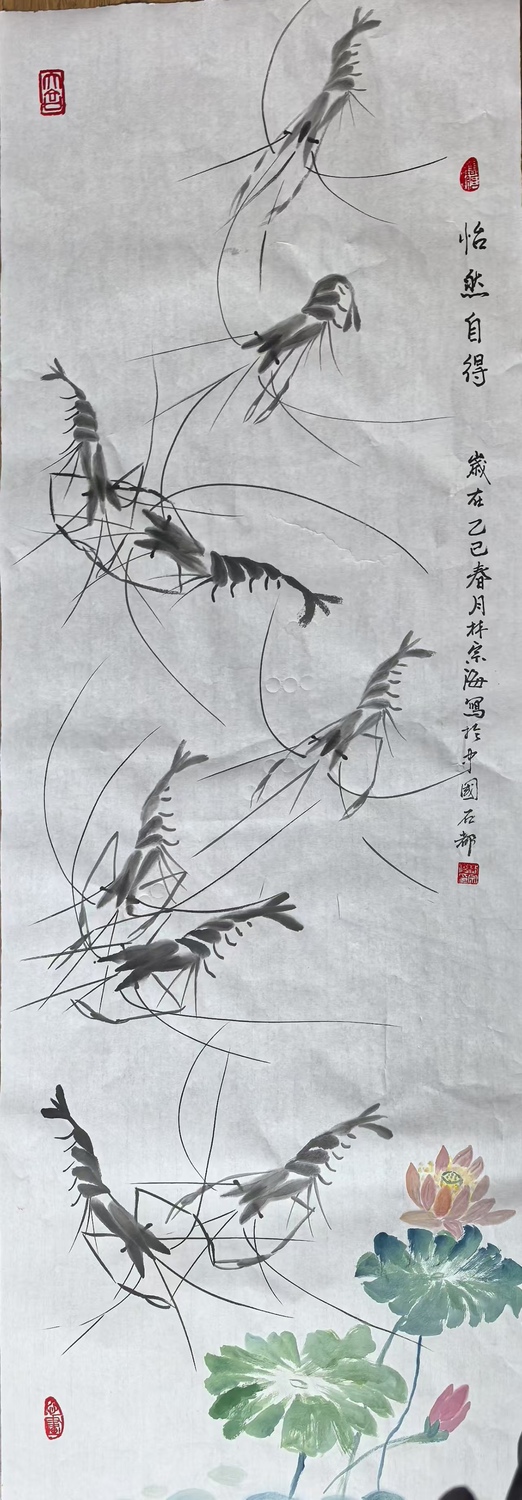 怡然自得
歲在乙巳春月林宗海寫於中國石都